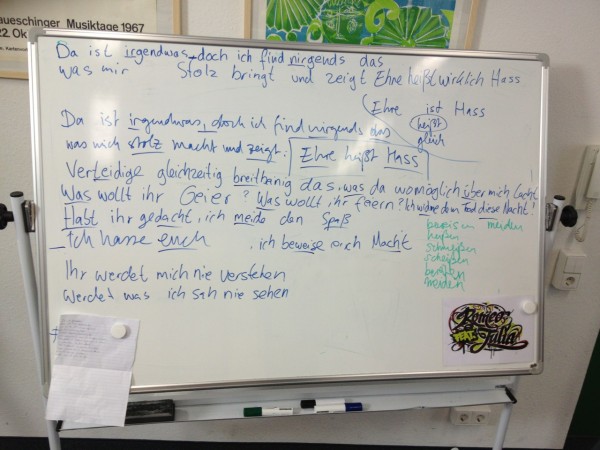 aueschinger Musiktage 1967
22. Ok
Da ist irgendwas, doch ich find nirgends das
was mir Stolz bringt und zeigt Ehre heißt wirklich Hass
Ehre ist Hass
heißt
gleich
Da ist irgendwas, doch ich find nirgends das
was mich stolz macht und zeigt: Ehre heißt Hass
Verteidige gleichzeitig breitbeinig das, was da womöglich über mich lacht
Was wollt ihr Geier? Was wollt ihr feiern? Ich widme dem Tod diese Nacht!
Habt ihr gedacht, ich meide den Spaß
Ich hasse euch, ich beweise euch Macht
Ihr werdet mich nie verstehen
werdet was ich sah nie sehen
beweisen meiden
heißen
schmeißen
scheißen
beißen
meiden
feat.
Julia